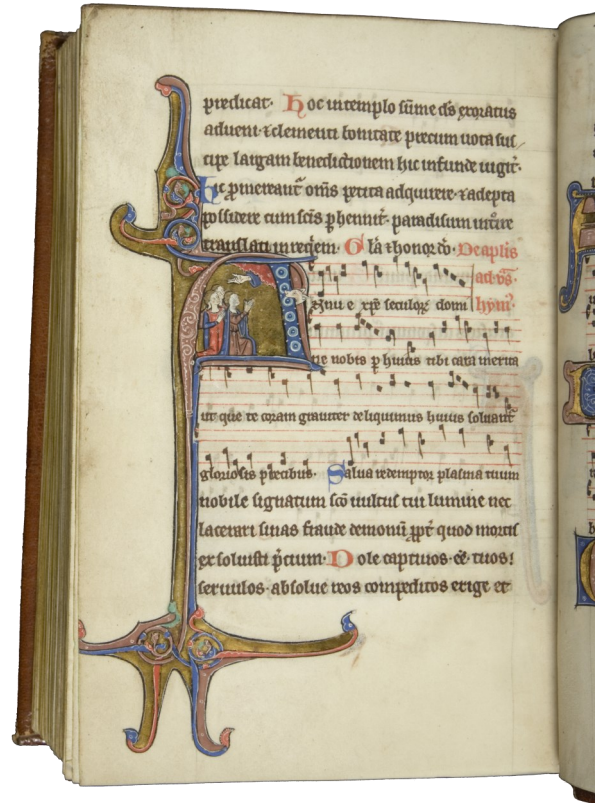 predicat. Hoc in templo sūme ds̄ exoratus
adveni. ⁊ clementi bonitate precum uota sus
cipe largam benedictionem hic infunde iugit̄.
hic ꝓmereant̄ om̄s petita adquirere. ⁊ adepta
possidere cum sc̄is ꝑhennit̄. paradisum introire
translati in reqiem. Gl̓a ⁊ honor dō. De aplis
ad vs̄.
Exultet xp̄e seculoꝝ domi hymn̄.
ne nobis ꝑ huius tibi cara merita
ut que te coram grauiter deliquimus huius soluant̄
gloriosis precibus. Salua redemptor plasma tuum
nobile signatum sc̄o uultus tui lumine nec
lacerari sinas fraude demonū ꝓpt̄ quod mortis
exsoluisti p̄cium. Dole captiuos. eē. tuos!
seruulos. absolue reos compeditos erige et